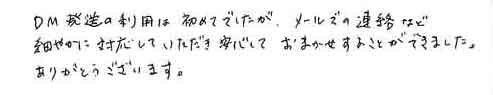 DM発送の利用は初めてでしたが、メールでの連絡など
細やかに対応していただき安心しておまかせすることができました。
ありがとうございます。